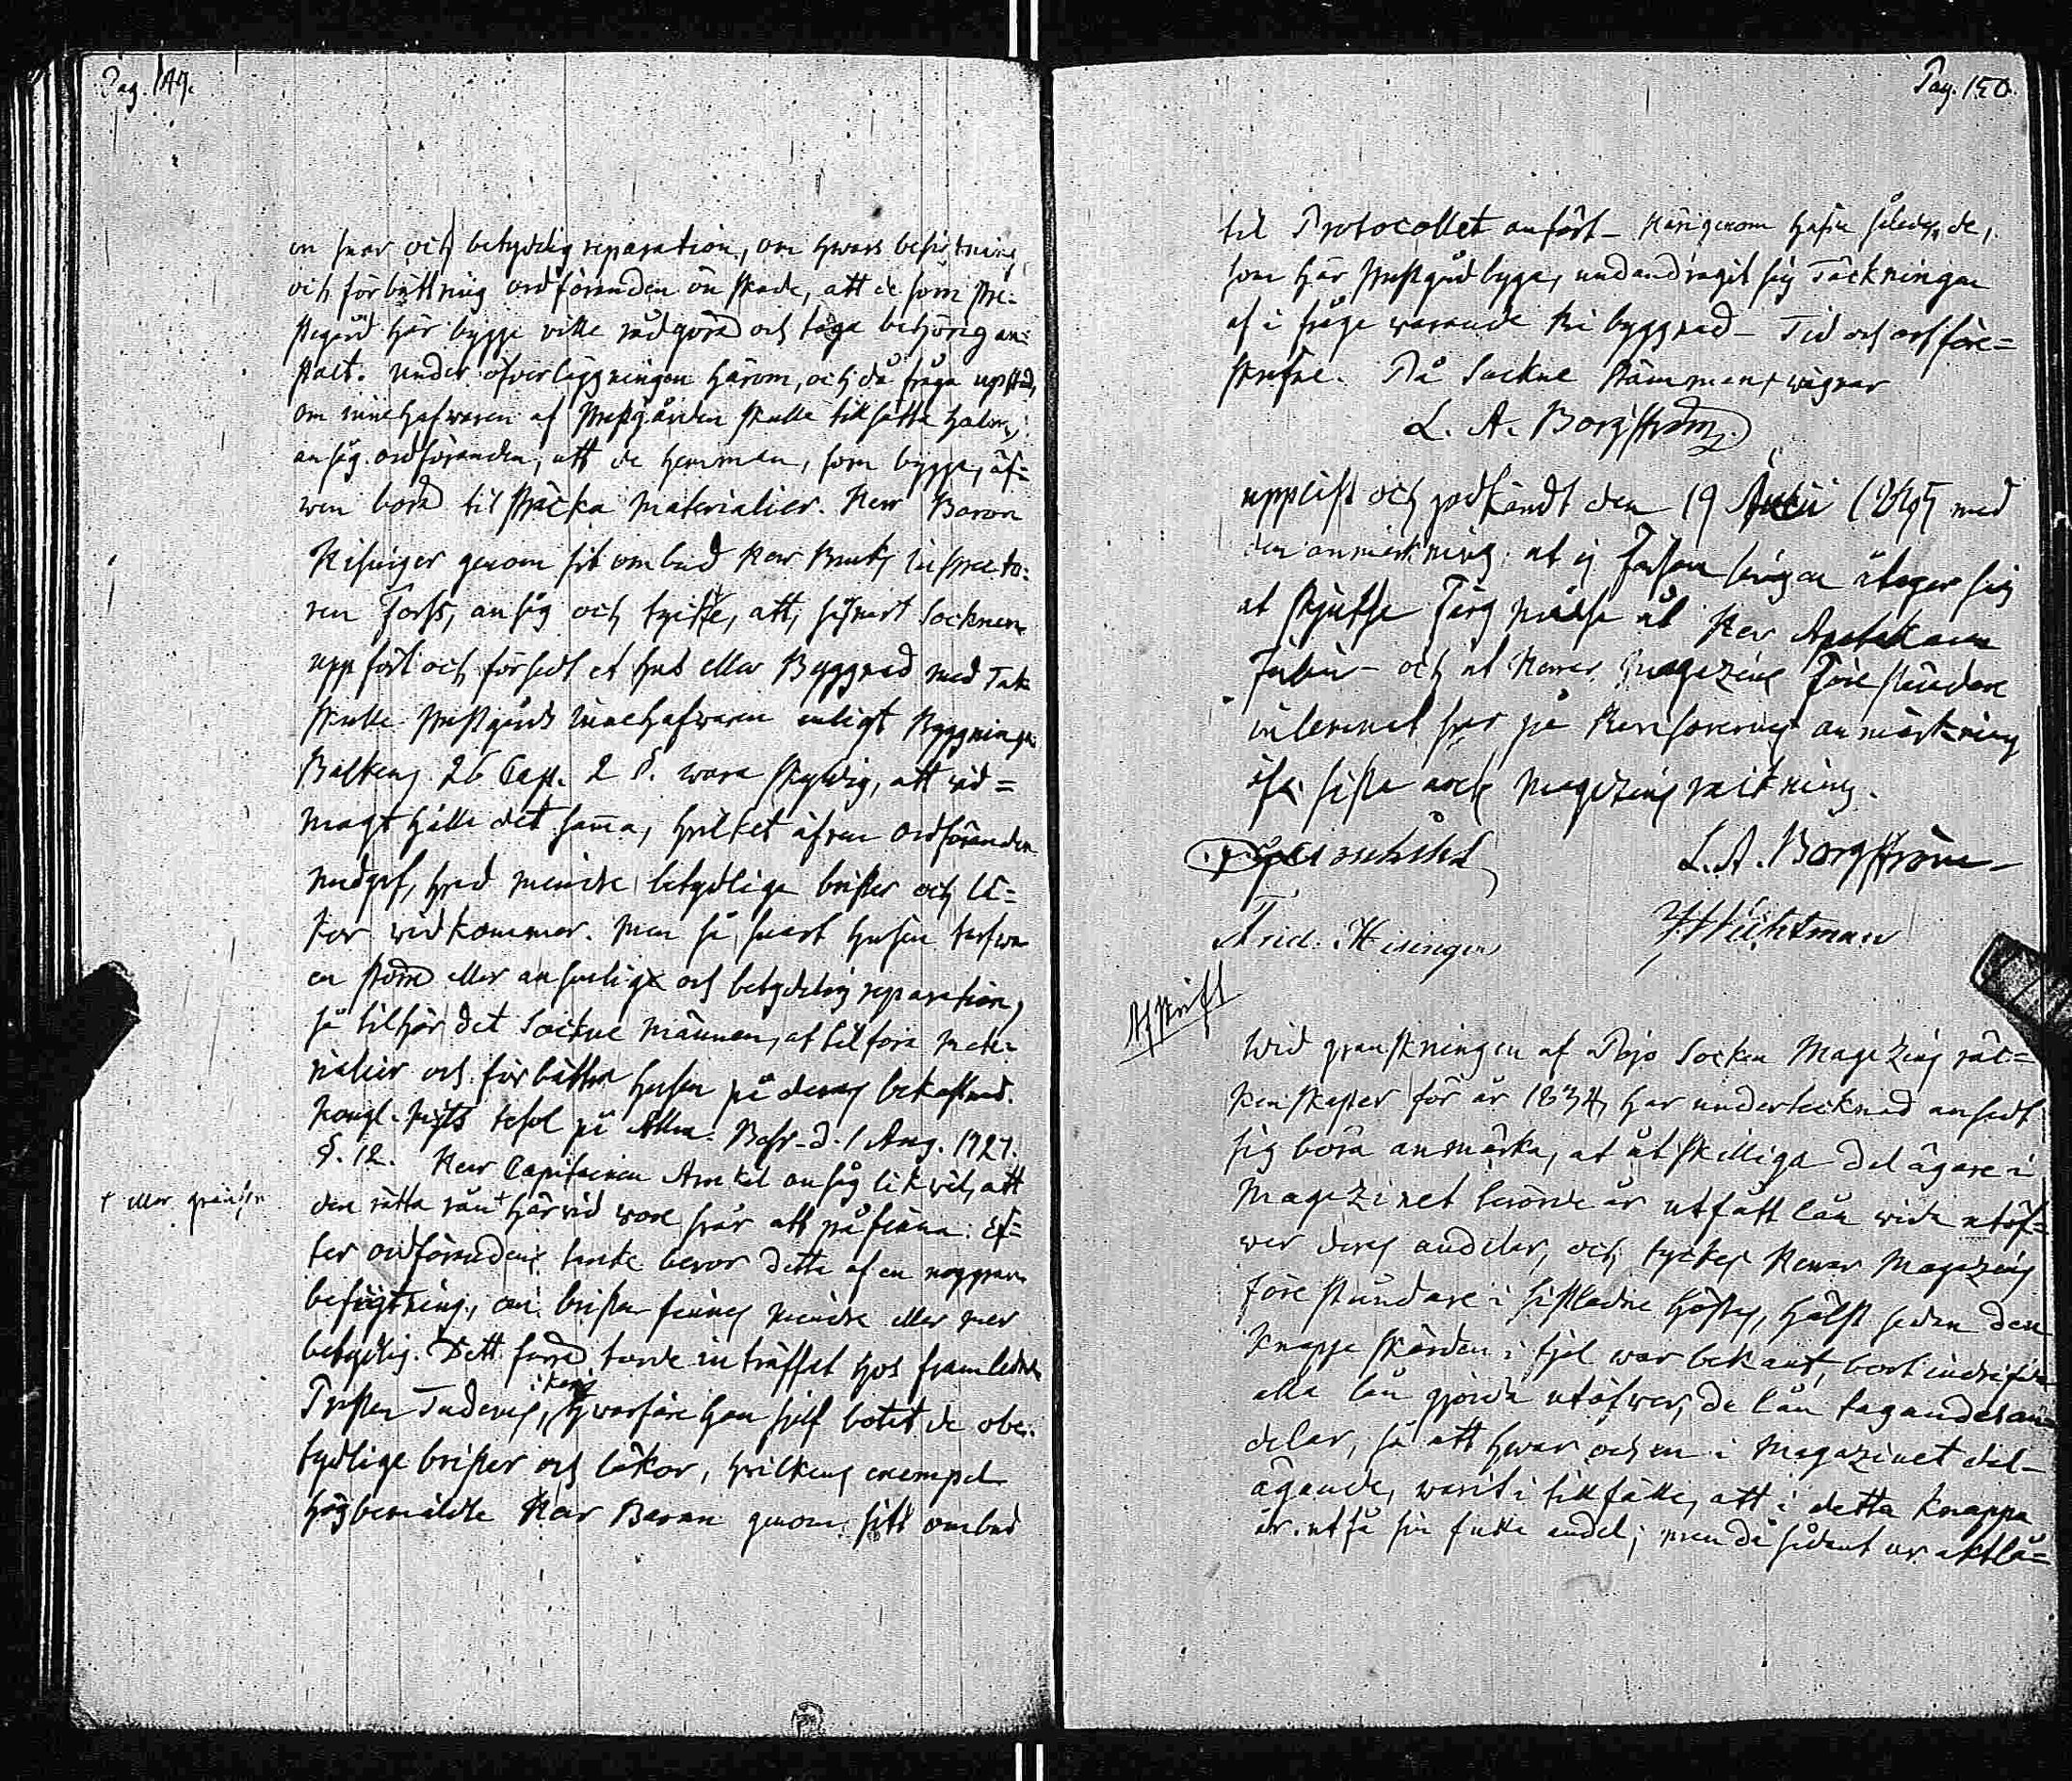 Pag. 149.
en snar och betydelig reparation, om hwars besigtning
och förbättring ordföranden önskade, att de som Pre-
stegård här bygga wille rådgöra och taga behörig an-
stalt. Under öfverläggningen härom, och då fråga upstod,
om innehafwaren af Prestgården skulle tilsätta halm,
ansåg ordföranden, att de hemman, som bygga, äf-
wen borde til täcka materialier. Herr Baron
Hisinger genom sit ombud Herr Bruks inspecto-
ren Forss, ansåg och tyckte, att, så snart Socknen
uppfört och försedt et hus eller Byggnad med Tak
skulle Prestgårds innehafwaren enligt Byggninga
Balkens 26 Cap. 2 §. wara skyldig, att wid=
magt hålla det samma, hwilket äfwen Ordföranden
medgaf, hwad mindre betydlige brister och lä=
kor widkommer. Men så snart husen tarfwa
en större eller ansenlige och betydelig reparation,
så tilhör det Sockne männen, at tilföra mate-
rialier och förbättra husen på deras bekostnad.
Kongl. Maj:ts resol på Allm. Besv. d. 1 Aug. 1727.
§. 12. Herr Capitainen Amkel ansåg likwäl, att
den rätta rån + härvid wore svår att påfinna. Ef=
+ eller gränsen
ter ordförandens tanke beror detta af en noggran
besigtning, om bristen finnes mindre eller mer
betydlig. Dett förra torde inträffat hos framledne
i kap
Prosten Tuderus, hwarföre han sjelf botat de obe-
tydlige brister och läkor, hwilkens exempel
högbemälde Herr Baron genom sitt ombud
Pag. 150.
til Protocollet anfört – Härigenom hafva således de,
som här Prestgård bygga, undandragit sig Täckningen
af i fråga warande Ri byggnad – Tid och ort före=
skrefne. På Sockne Stämmans wägnar
L. A. Borgström
uppläst och godkändt den 19 med
den anmärkning: at ej Församlingen åtager sig
at skjutsa Färg åt Herr Apothekaren
Julin – och at Herrar Magazins Föreståndare
inlemnat svar på Revisorernes anmärkning
öfver sista års Magazins räkning.
L. A. Borgström
Frid. Hisinger
Wichtman
Afskrift
Wid granskningen af Pojo Socken Magazins räk=
kenskaper för år 1834, har undertecknad ansedt
sig böra anmärka, at åtskilliga delägare i
Magazinet berörde år utfått lån wida utöf=
wer deras andelar, och tyckes Herrar Magazins
Föreståndare i sistledne hösten, hälst sedan den
knappa skörden i fjol war bekant, bort indrifva
alla lån gjorda utöfwer, de lån tagandes an=
delar, så att hwar och en i Magazinet del-
ägande, warit i tillfälle, att i detta knappa
år utfå sin fulla andel; men då sådant ur aktlå=